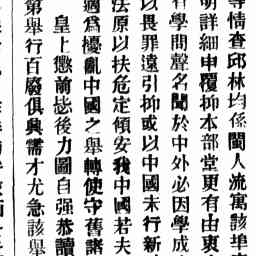 等情查邱林均係閩人流寓該埠
明詳細申覆抑本部堂更有由衷
學問聲名聞於中外必因學成
以畏罪遠引抑或以中國未行新
法原以扶危定傾安我中國若夫
適爲擾亂中國之舉轉使守舊諸
皇上懲前毖後力圖自强恭讀
第舉行百廢俱興需才尤急該舉